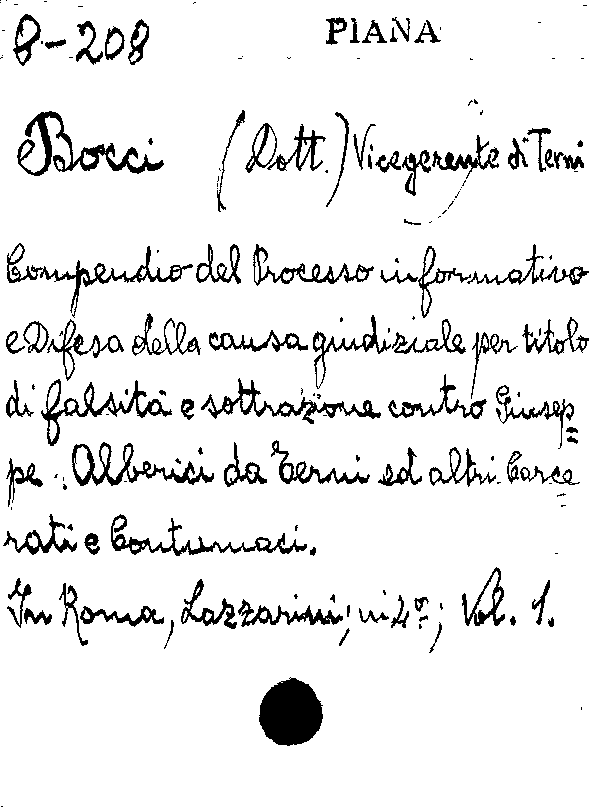 8-208 PIANA
Bocci (Dott.) Vicegerente di Terni
Compendio del Processo informativo
e Difesa della causa giudiziale per titolo
di falsità e sottrazione contro Giusep=
pe Alberici da Terni ed altri Carce=
rati e Contumaci.
In Roma, Lazzarini; in 4º; Vol. 1.